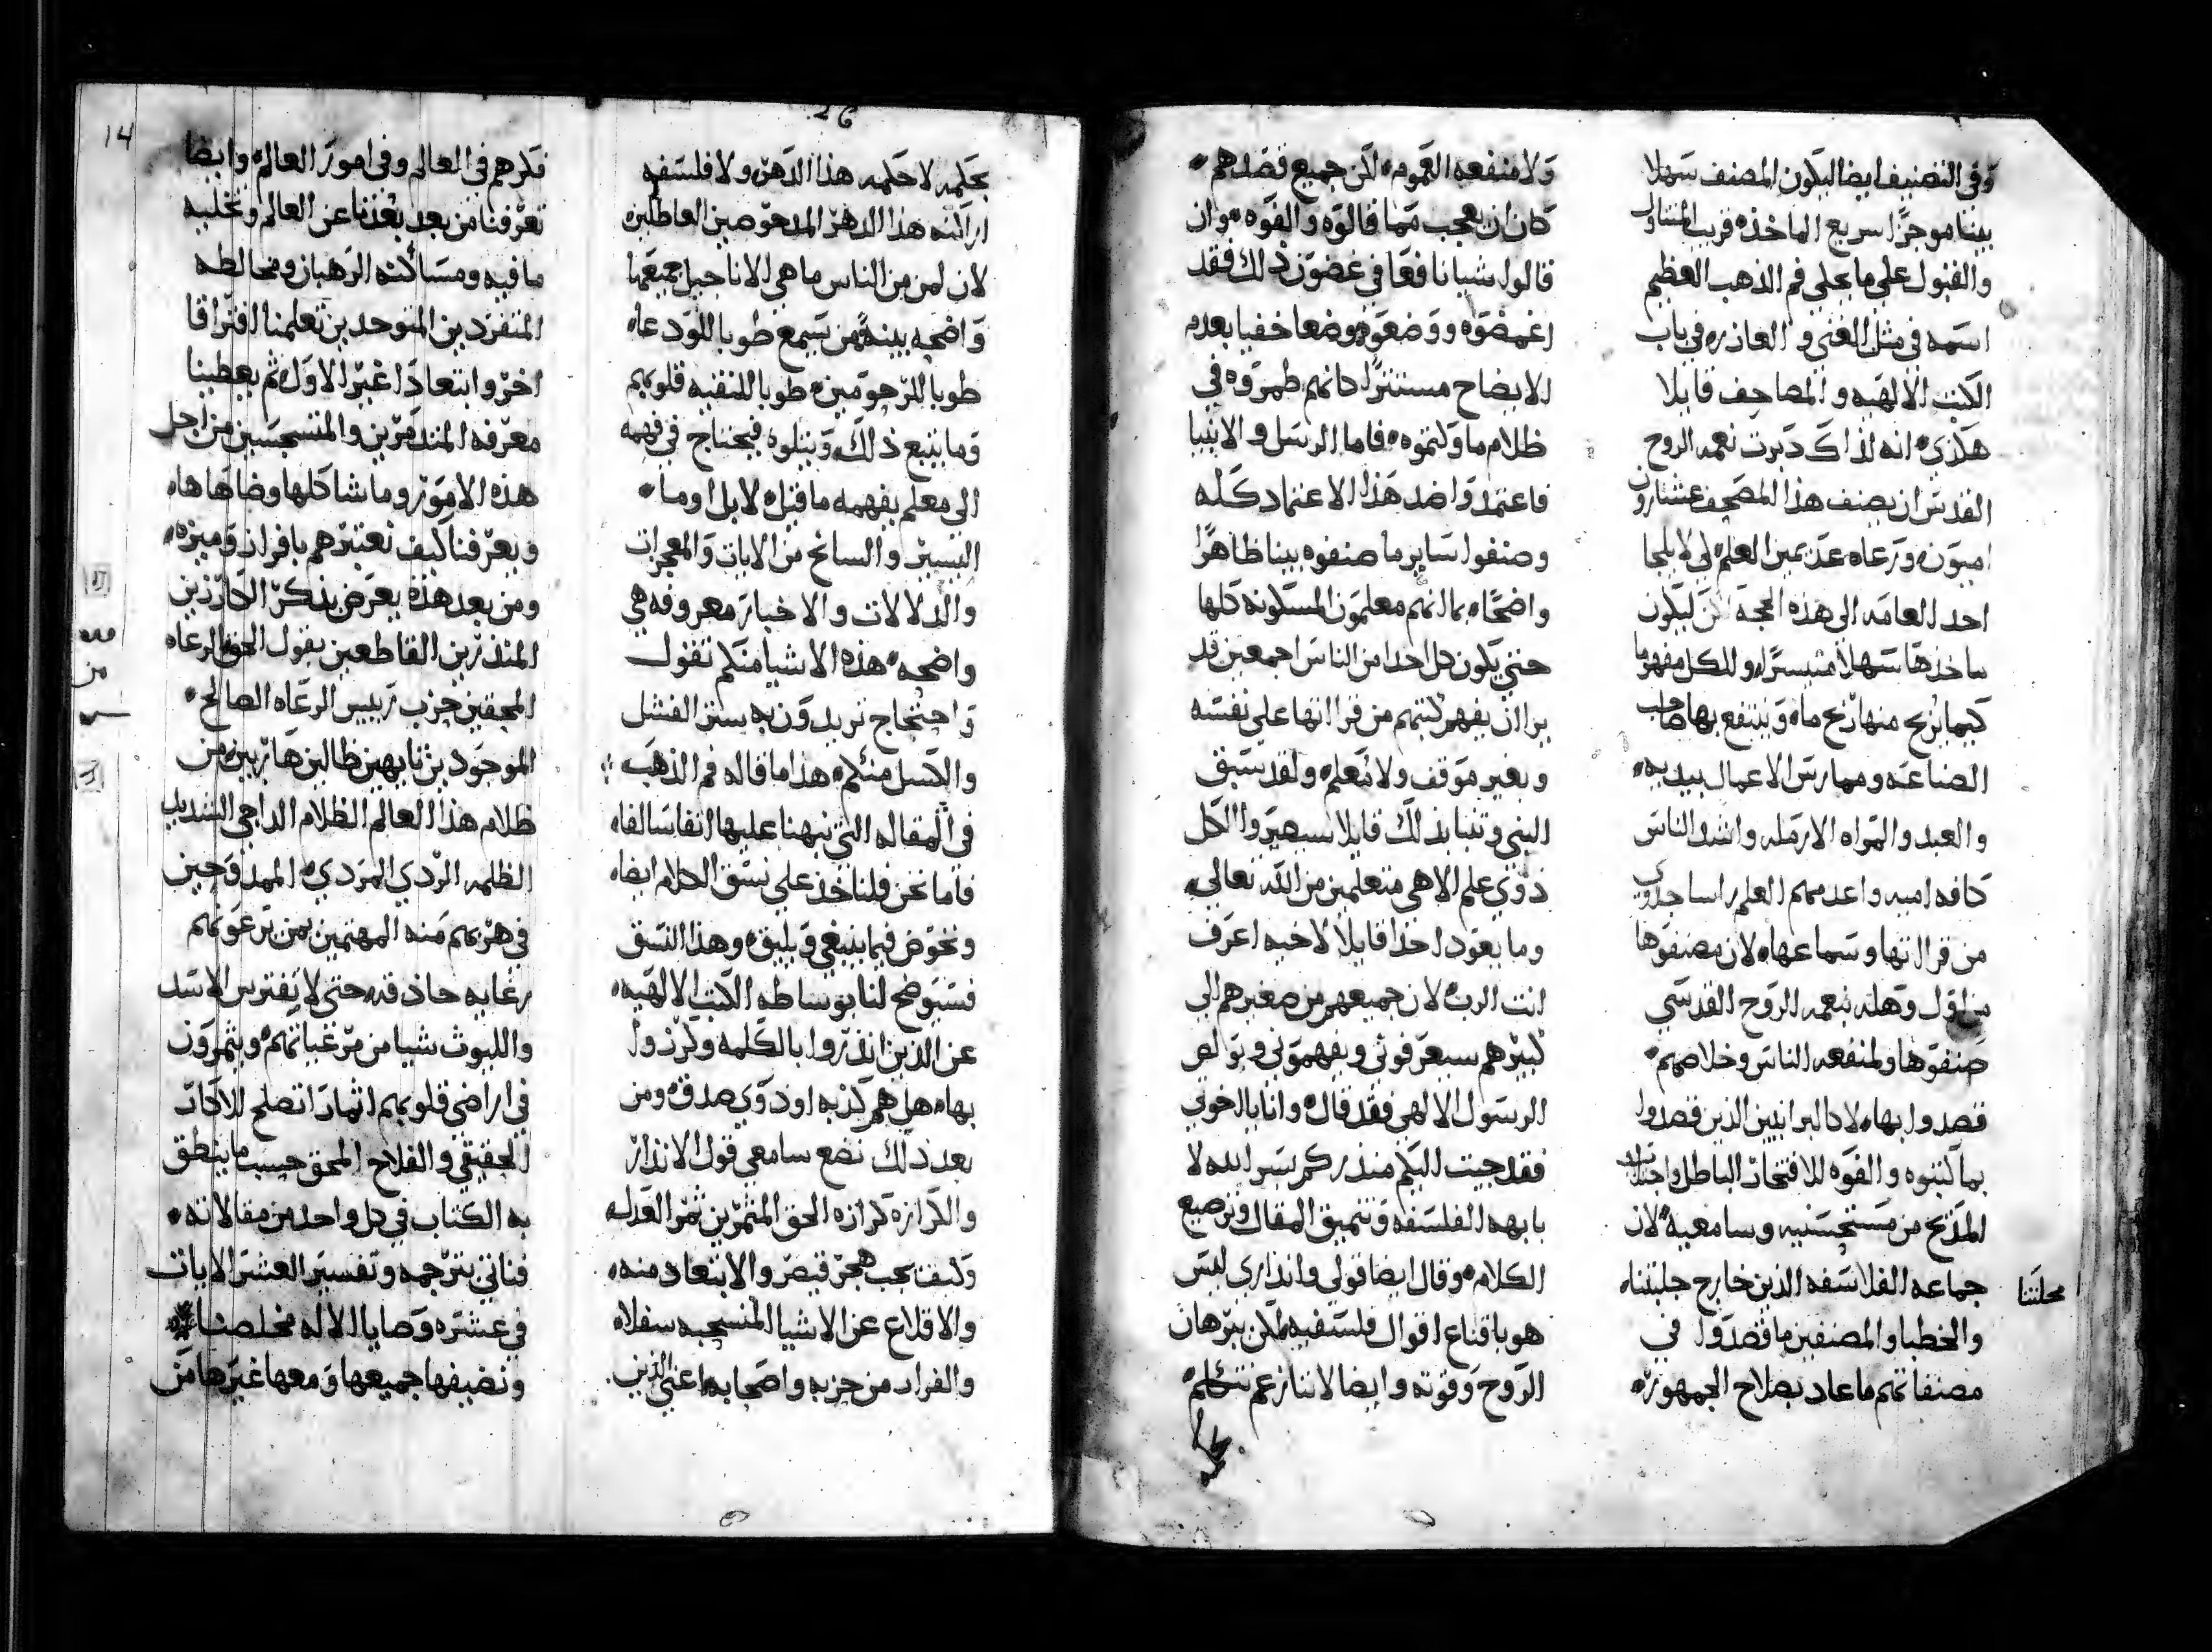 وفي التصنيف ايضا ليكون المصنف سهلا
بينا موجزا سريع الماخذ قريب المتناول
والقبول علي ما يحلي فم الذهب العظيم
اسمه في مثل الغني و العازر في باب
الكتب الالهيه و المصاحف قايلا
هكذي انه اذا كـ دبرت نعمه الروح
القدس ان يصنف هذا المصحف عشارون
اميون ورعاه عديمين العلم لي لا يلجا
احد العامه الي هذه الحجة لكن ليكون
ماخذها سهلا متيسرا وللكل مفهوما
كيما يربح منها ربح ما وينتفع بها صاحب
الصناعه وممارس الاعمال بيديه
والعبد والمراه الارمله واشد الناس
كافه اميه واعدمهم العلم راسا جدوي
من قرااتها وسماعها لان مصنفوها
من اول وهله بنعمه الروح القدسي
صنفوها ولمنفعه الناس وخلاصهم
قصدوا بها لا كالبرانيين الذين قصدوا
بما كتبوه والقوه للافتخار الباطل واجتلاب
المديح من مستحسنيه وسامعيه لان
جماعه الفلاسفه الذين خارج جلبتنا
محلتنا
والخطبا والمصنفين ما قصدوا في
مصنفاتهم ما عاد بصلاح الجمهور
ولا منفعه العموم لكن جميع قصدهم
كان ان يعجب مما قالوه والفوه وان
قالوا شيا نافعا في غضون ذلك فقد
اغمضوه ووضعوه وضعا خفيا بعدم
الايضاح مستترا كانهم طمروه في
ظلام ما وكتموه فاما الرسل والانبيا
فاعتمدوا ضد هذا الاعتماد كله
وصنفوا ساير ما صنفوه بينا ظاهرا
واضحا بما انهم معلمون المسكونه كلها
حتي يكون كل احد من الناس اجمعين قد
برا ان يفهم كتبهم من قرااتها علي نفسه
وبغير موقف ولا معلم ولقد سبق
النبي وتنبا بذلك قايلا سيصيروا الكل
ذوي علم الاهي متعلمين من الله تعالي
وما يعود احدا قايلا لاخيه اعرف
انت الرب لان جميعهم من صغيرهم الي
كبيرهم سيعرفوني ويفهموني وبولص
الرسول الالهي فقد قال وانا يا اخوتي
فقد جيت اليكم منذركم بسر الله لا
بابهه الفلسفه وتنميق المقال وترصيع
الكلام وقال ايضا قولي وانذاري ليس
هو باقناع اقوال فلسفيه لكن ببرهان
الروح وقوته وايضا لاننا زعم نتكلم
بحكمه
26
بحكمه لا حكمه هذا الدهر ولا فلسفه
اراكنه هذا الدهر المدحوضين العاطلين
لان لمن من الناس ما هي الاناجيل جميعها
واضحه بينه من يسمع طوبا للودعاه
طوبا للرحومين طوبا للنقيه قلوبهم
وما يتبع ذلك ويتلوه فيحتاج في فهمه
الي معلم يفهمه ما قيل لا بل اوما
اليسير والسانح من الايات والمعجزات
والدلالات والاخبار معروفه هي
واضحه هذه الاشيا منكم تقول
واحتجاج تريدون به ستر الفشل
والكسل منكم هذا ما قاله فم الذهب
في المقاله التي نبهنا عليها انفا سالفا
فاما نحن فلناخذ علي نسق الكلام ايضا
ونخوض فيما ينبغي ويليق وهذا النسق
فسيوضح لنا بوساطه الكتب الالهيه
عن الذين انذروا بالكلمه وكرزوا
بها هل هم كذبه او ذوي صدق ومن
بعد ذلك نضع سامعي قول الانذار
والكرازه كرازه الحق المثمرين ثمر العدل
وكيف يجب هجر قيصر والابتعاد منه
والاقلاع عن الاشيا المنسحبه سفلا
والفرار من حزبه واصحابه اعني الذين
14
فكرهم في العالم وفي امور العالم وايضا
تعرفنا من بعد بعدنا عن العالم وتخليه
ما فيه ومساكنه الرهبان ومخالطه
المتفردين المتوحدين تعلمنا افتراقا
اخر وابتعادا غير الاول ثم يعطينا
معرفه المتدمرين والمتسجسين من اجل
هذه الامور وما شاكلها وضاهاها
ويعرفنا كيف نعتبرهم بافراز وميزه
ومن بعد هذه يعرض بذكر الكارزين
المنذرين القاطعين بقول الحق الرعاه
المحقين حزب رييس الرعاه الصالح
الموجودين تايهين ظالين هاربين من
ظلام هذا العالم الظلام الداجي الشديد
الظلمه الردي المردي الممدوحين
في هربهم منه المهتمين بمن يرعونهم
رعايه حاذقه حتي لا يفترس الاسد
والليوث شيا من مرعياتهم ويثمرون
في اراضي قلوبهم اثمارا تصلح للاكار
الحقيقي والفلاح المحق حسب ما ينطق
به الكتاب في كل واحد من مقالاته
فناتي بترجمه وتفسير العشر الايات
في عشره وصايا الاله مخلصنا
ونضيفها جميعها ومعها غيرها من